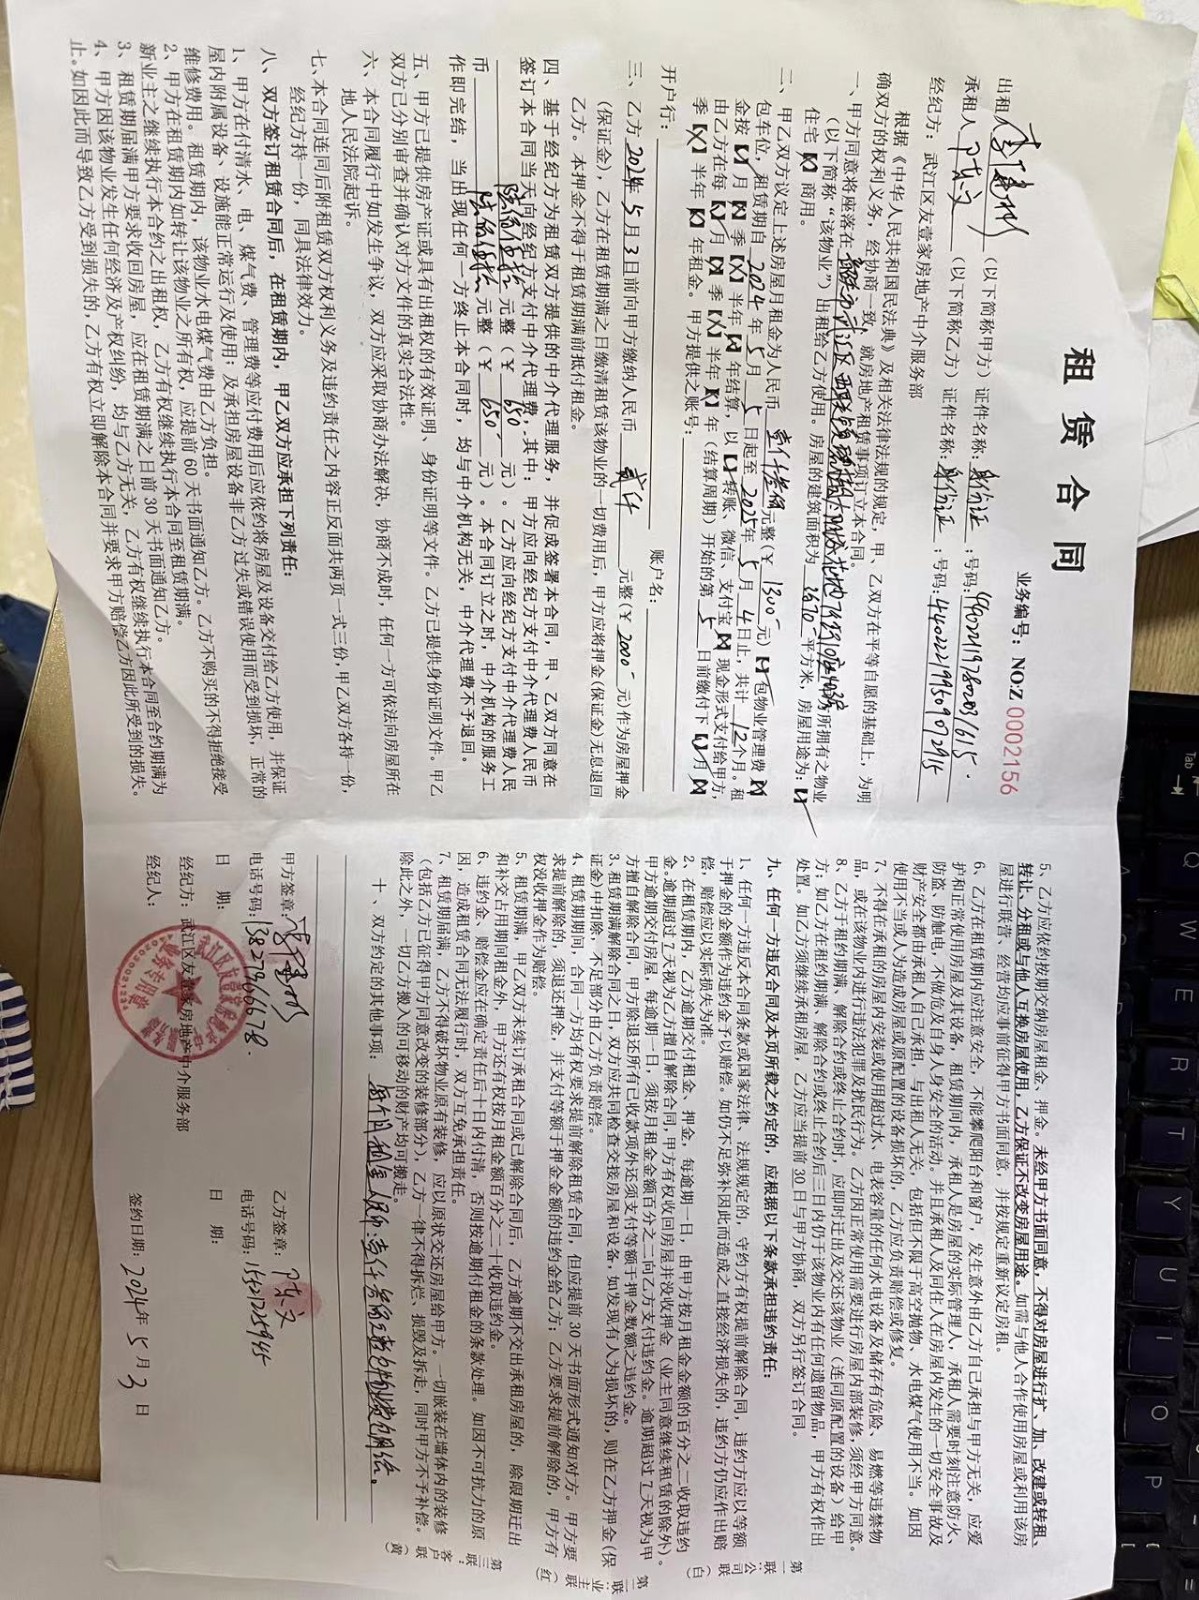 租 赁 合 同
业务编号：NO:Z 0002156
出租人 （以下简称甲方）证件名称：身份证：号码：
承租人 （以下简称乙方）证件名称：身份证：号码：
经纪方：武江区友壹家房地产中介服务部
根据《中华人民共和国民法典》及相关法律法规的规定，甲、乙双方在平等自愿的基础上，为明
确双方的权利义务，经协商一致，就房地产租赁事项订立本合同。
一、甲方同意将座落在 所拥有之物业
（以下简称“该物业”）出租给乙方使用。房屋的建筑面积为 平方米，房屋用途为：【✓】
住宅【X】商用。
二、甲乙双方议定上述房屋月租金为人民币 壹仟叁佰 元整（￥ 1300 元）【✓】包物业管理费【X】
包车位，租赁期自 2024 年 5 月 5 日起至 2025 年 5 月 4 日止，共计 12 个月。租
金按【✓】月【X】季【X】半年【X】年结算，以【✓】转账、微信、支付宝【X】现金形式支付给甲方，
由乙方在每【✓】月【X】季【X】半年【X】年（结算周期）开始的第 5 日前缴付下【✓】月【X】
季【X】半年【X】年租金。甲方提供之账号：
开户行： 账户名：
三、乙方 2024年 5 月 3 日前向甲方缴纳人民币 贰仟 元整（￥ 2000 元）作为房屋押金
（保证金），乙方在租赁期满之日缴清租赁该物业的一切费用后，甲方应将押金（保证金）无息退回
乙方。本押金不得于租赁期满前抵付租金。
四、基于经纪方为租赁双方提供的中介代理服务，并促成签署本合同，甲、乙双方同意在
签订本合同当天向经纪方支付中介代理费，其中：甲方应向经纪方支付中介代理费人民币
陆佰伍拾 元整（￥ 650 元）。乙方应向经纪方支付中介代理费人民
币 陆佰伍拾 元整（￥ 650 元）。本合同订立之时，中介机构的服务工
作即完结，当出现任何一方终止本合同时，均与中介机构无关，中介代理费不予退回。
五、甲方已提供房产证或具有出租权的有效证明、身份证明等文件。乙方已提供身份证明文件。甲乙
双方已分别审查并确认对方文件的真实合法性。
六、本合同履行中如发生争议，双方应采取协商办法解决，协商不成时，任何一方可依法向房屋所在
地人民法院起诉。
七、本合同连同后附租赁双方权利义务及违约责任之内容正反面共两页一式三份，甲乙双方各持一份，
经纪方持一份，同具法律效力。
八、双方签订租赁合同后，在租赁期内，甲乙双方应承担下列责任：
1、甲方在付清水、电、煤气费、管理费等应付费用后应依约将房屋及设备交付给乙方使用，并保证
屋内附属设备、设施能正常运行及使用；及承担房屋设备非乙方过失或错误使用而受到损坏，正常的
维修费用。租赁期内，该物业水电煤气费由乙方负担。
2、甲方在租赁期内如转让该物业之所有权，应提前 60 天书面通知乙方。乙方不购买的不得拒绝接受
新业主之继续执行本合约之出租权，乙方有权继续执行本合同至租赁期满。
3、租赁期届满甲方要求收回房屋，应在租赁期满之日前 30 天书面通知乙方。
4、甲方因该物业发生任何经济及产权纠纷，均与乙方无关，乙方有权继续执行本合同至合约期满为
止。如因此而导致乙方受到损失的，乙方有权立即解除本合同并要求甲方赔偿乙方因此所受到的损失。
5、乙方应依约按期交纳房屋租金、押金。未经甲方书面同意，不得对房屋进行扩、加、改建或转租、
转让、分租或与他人互换房屋使用，乙方保证不改变房屋用途。如需与他人合作使用房屋或利用该房
屋进行联营、经营均应事前征得甲方书面同意，并按规定重新议定房租。
6、乙方在租赁期内应注意安全，不能攀爬阳台和窗户，发生意外由乙方自己承担与甲方无关，应爱
护和正常使用房屋及其设备，租赁期间内，承租人是房屋的实际管理人，承租人需要时刻注意防火、
防盗、防触电，不做危及自身人身安全的活动。并且承租人及同住人在房屋内发生的一切安全事故及
财产安全都由承租人自己承担，与出租人无关，包括但不限于高空抛物、水电煤气使用不当。如因
使用不当或人为造成房屋或原配置的设备损坏的，乙方应负责赔偿或修复。
7、不得在承租的房屋内安装或使用超过水、电表容量的任何水电设备及储存有危险、易燃等违禁物
品，或在该物业内进行违法犯罪及扰民行为。乙方因正常使用需要进行房屋内部装修，须经甲方同意。
8、乙方于租约期满、解除合约或终止合约时，应即时迁出及交还该物业（连同原配置的设备）给甲
方；如乙方在租约期满、解除合约或终止合约后三日内仍于该物业内有任何遗留物品，甲方有权作出
处置。如乙方须继续承租房屋，乙方应当提前 30 日与甲方协商，双方另行签订合同。
九、任何一方违反合同及本页所载之约定的，应根据以下条款承担违约责任：
1、任何一方违反本合同条款或国家法律、法规规定的，守约方有权提前解除合同，违约方应以等额
于押金的金额作为违约金予以赔偿。如仍不足弥补因此而造成之直接经济损失的，违约方仍应作出赔
偿，赔偿应以实际损失为准。
2、在租赁期内，乙方逾期交付租金、押金，每逾期一日，由甲方按月租金金额的百分之二收取违约
金。逾期超过 7 天视为乙方擅自解除合同，甲方有权收回房屋并没收押金（业主同意继续租赁的除外）。
甲方逾期交付房屋，每逾期一日，须按月租金金额百分之二向乙方支付违约金。逾期超过 7 天视为甲
方擅自解除合同，甲方除退还所有已收款项外还须支付等额于押金数额之违约金。
3、租赁期满解除合同之日，双方应共同检查交接房屋和设备，如发现有人为损坏的，则在乙方押金（保
证金）中扣除，不足部分由乙方负责赔偿。
4、租赁期期间，合同一方均有权要求提前解除租赁合同，但应提前 30 天书面形式通知对方。甲方要
求提前解除的，须退还押金，并支付等额于押金金额的违约金给乙方；乙方要求提前解除的，甲方有
权没收押金作为赔偿。
5、租赁期满，甲乙双方未续订承租合同或已解除合同后，乙方逾期不交出承租房屋的，除限期迁出
和补交占用期间租金外，甲方还有权按月租金额百分之二十收取违约金。
6、违约金、赔偿金应在确定责任后十日内付清，否则按逾期付租金的条款处理。如因不可抗力的原
因，造成租赁合同无法履行时，双方互免承担责任。
7、租赁期届满，乙方不得破坏物业原有装修，应以原状交还房屋给甲方。一切嵌装在墙体内的装修
（包括乙方已征得甲方同意改变的装修部分），乙方一律不得拆烂、损毁及拆走，同时甲方不予补偿。
除此之外，一切乙方搬入的可移动的财产均可搬走。
十、双方约定的其他事项：
甲方签章： 乙方签章：
电话号码：13827966678 电话号码：
日 期： 日 期：
经纪方：武江区友壹家房地产中介服务部
经纪人： 签约日期：2024年 5 月 3 日
第一联：公司联（白）
第二联：业主联（红）
第三联：客户联（黄）